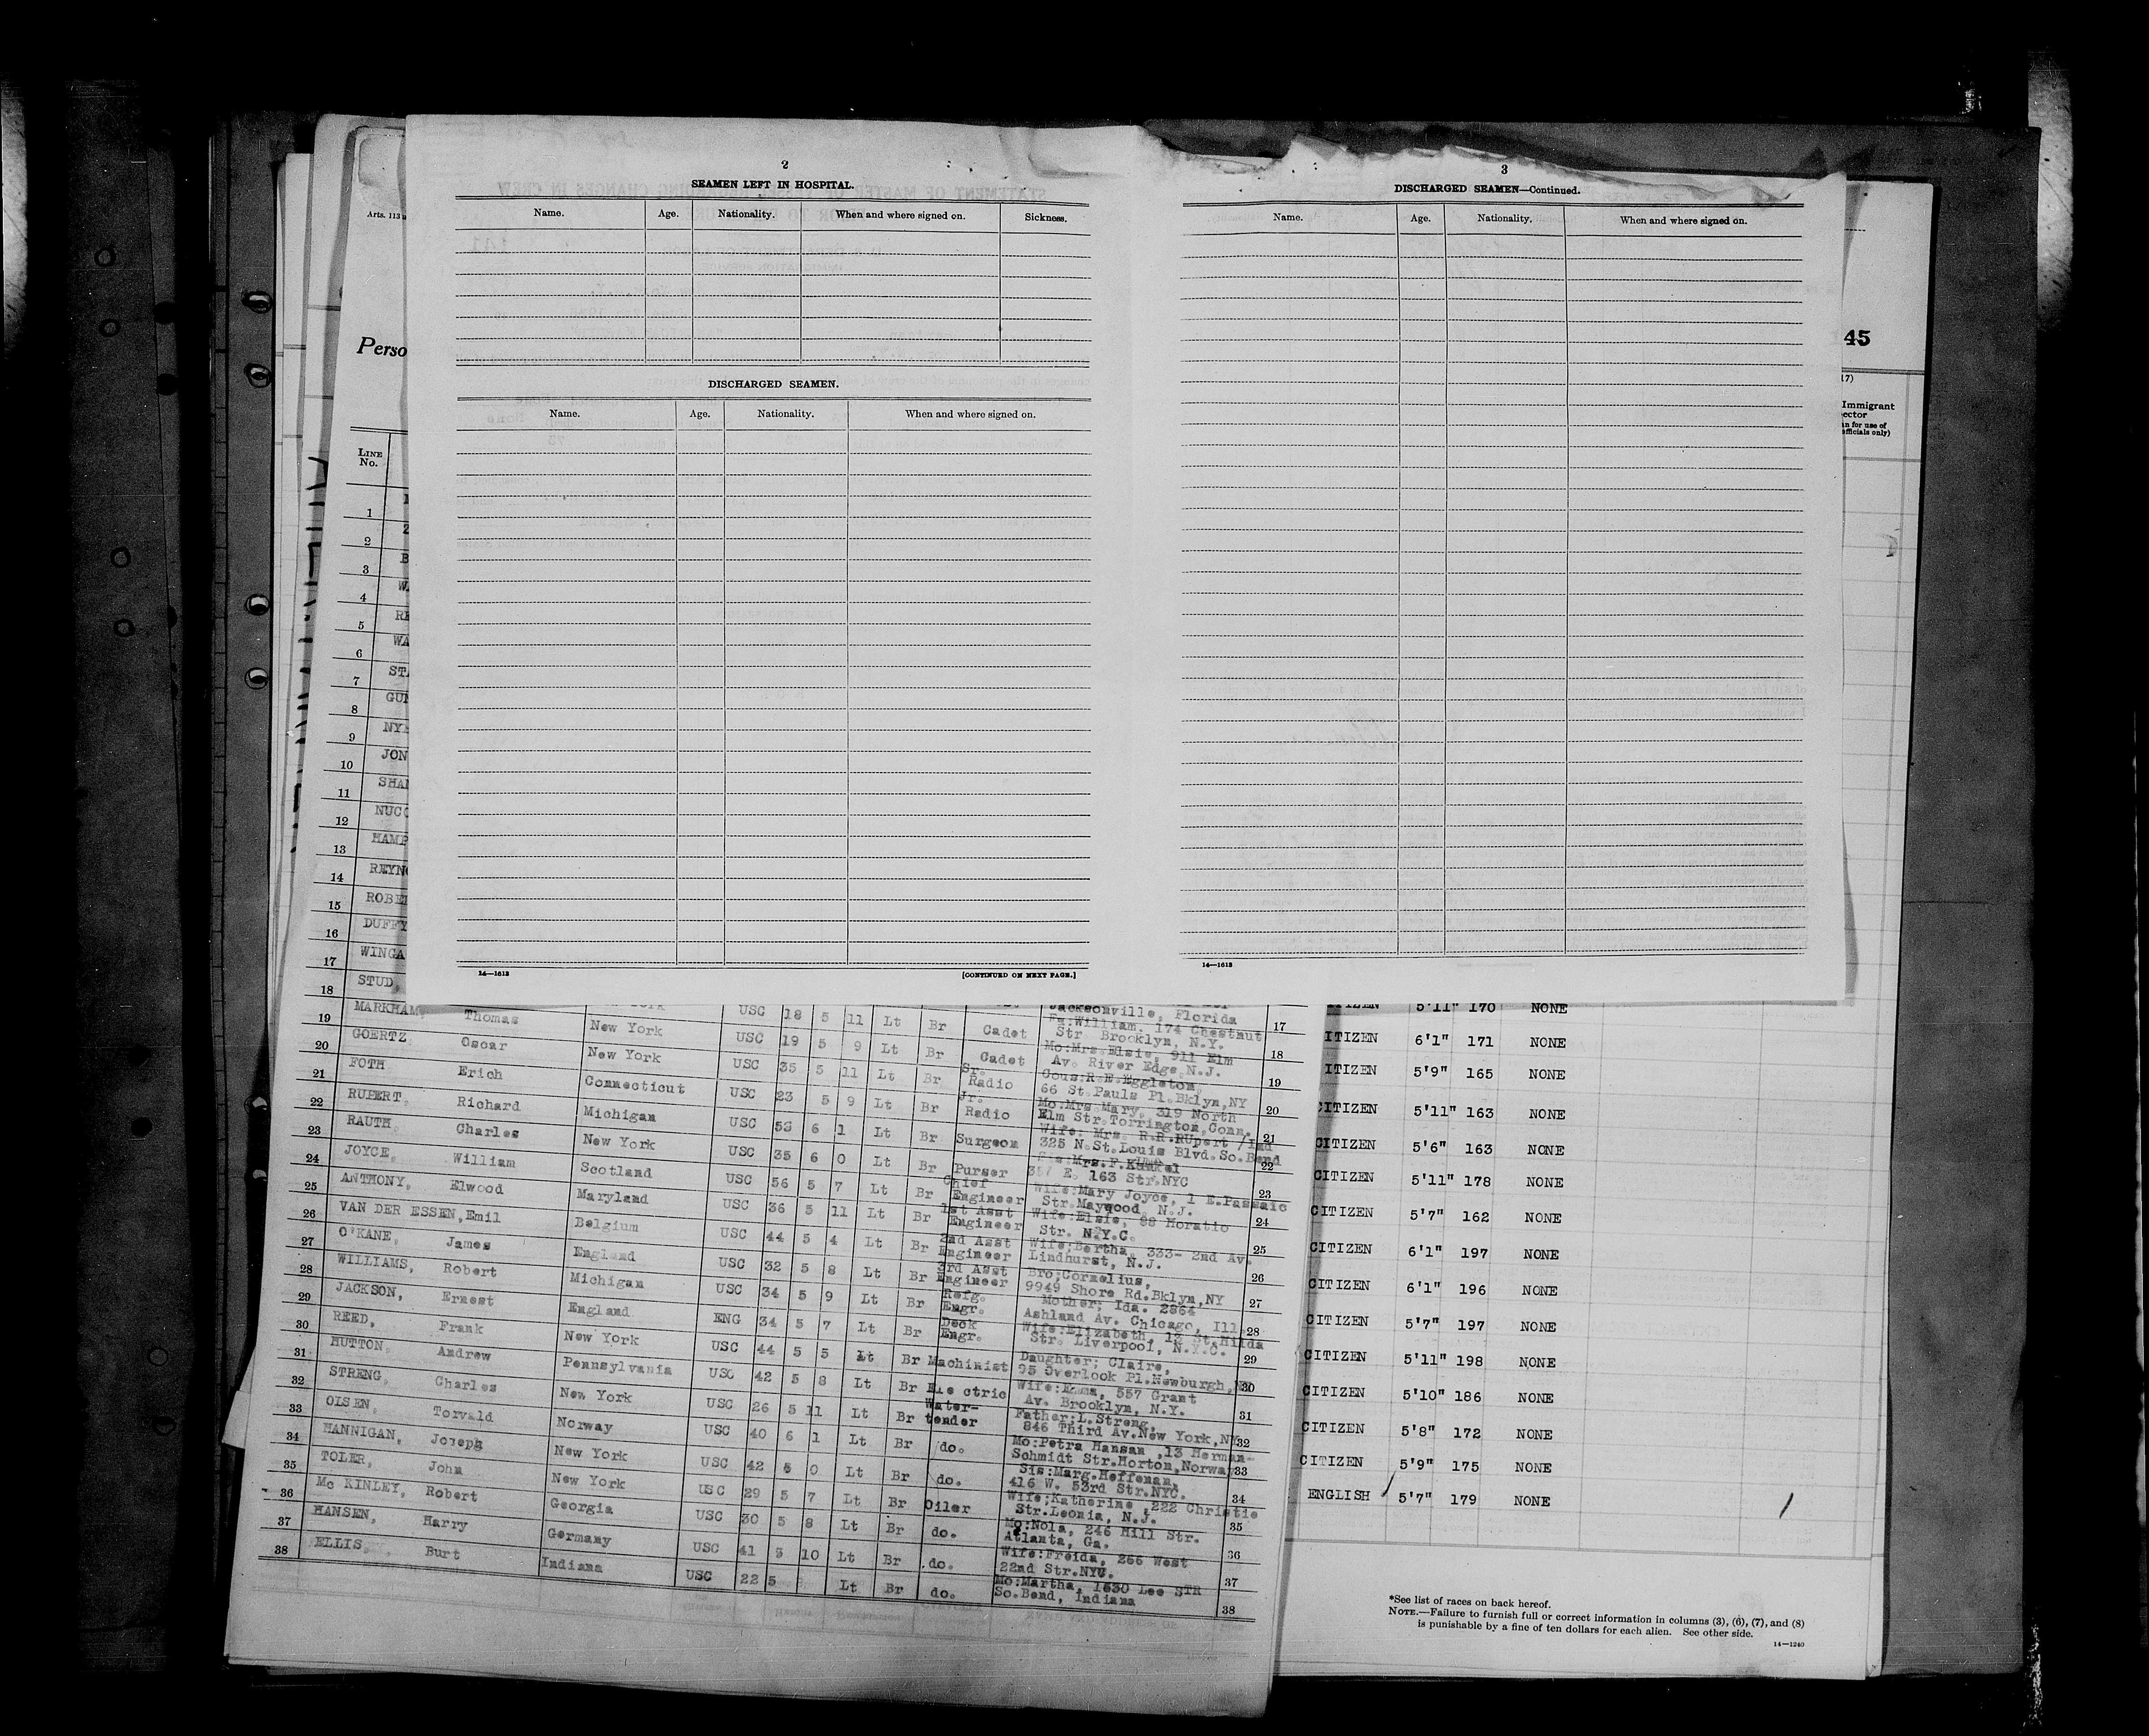 2
SEAMEN LEFT IN HOSPITAL.
Name. Age. Nationality. When and where signed on. Sickness.
DISCHARGED SEAMEN.
Name. Age. Nationality. When and where signed on.
14—1613 [CONTINUED ON NEXT PAGE.]
3
DISCHARGED SEAMEN—Continued.
Name. Age. Nationality. When and where signed on.
14—1613
Arts. 113
Perso
LINE No.
1
2 Z
3 B
4 W
5 RE
6 WA
7 ST
8 GUN
9 NY
10 JON
11 SHA
12 NUC
13 HAMP
14 REYN
15 ROBE
16 DUFFY
17 WINGA
18 STUD
Jacksonville, Florida
19 MARKHAM, Thomas New York USC 18 5 11 Lt Br Cadet Fa:William. 174 Chestnut Str. Brooklyn, N.Y. 17
20 GOERTZ Oscar New York USC 19 5 9 Lt Br Cadet Mo:Mrs.Elsie, 911 Elm Av. River Edge N.J. 18
21 FOTH Erich Connecticut USC 35 5 11 Lt Br Sr. Radio Cous:R.E.Eggleton, 66 St.Pauls Pl.Bklyn,NY 19
22 RUPERT, Richard Michigan USC 23 5 9 Lt Br Jr. Radio Mo:Mrs.Mary, 319 North Elm Str.Torrington,Conn. 20
23 RAUTH Charles New York USC 53 6 1 Lt Br Surgeon Wife: Mrs. R.R.RUpert /Ind 325 N.St.Louis Blvd.So.Bend 21
24 JOYCE, William Scotland USC 35 6 0 Lt Br Purser Mrs.F. E. 163 Str.NYC 22
25 ANTHONY, Elwood Maryland USC 56 5 7 Lt Br Chief Engineer Wife:Mary Joyce, 1 E.Passaic Str.Maywood, N.J. 23
26 VAN DER ESSEN,Emil Belgium USC 36 5 11 Lt Br 1st Asst Engineer Wife:Elsie, 88 Horatio Str. N.Y.C. 24
27 O'KANE, James England USC 44 5 4 Lt Br 2nd Asst Engineer Wife:Bertha, 333- 2nd Av. Lindhurst, N.J. 25
28 WILLIAMS, Robert Michigan USC 32 5 8 Lt Br 3rd Asst Engineer Bro;Cornelius, 9949 Shore Rd.Bklyn,NY 26
29 JACKSON, Ernest England USC 34 5 9 Lt Br Refg. Engr. Mother; Ida. 2864 Ashland Av. Chicago, Ill. 27
30 REED, Frank New York ENG 34 5 7 Lt Br Deck Engr. Wife:Elizabeth, 13 St.Hilda Str. Liverpool, N.Y.C. 28
31 HUTTON, Andrew Pennsylvania USC 44 5 5 Lt Br Machinist Daughter; Claire, 95 Overlook Pl.Newburgh, 29
32 STRENG, Charles New York USC 42 5 8 Lt Br Electric Wife:Emma, 557 Grant Av. Brooklyn, N.Y. 30
33 OLSEN, Torvald Norway USC 26 5 11 Lt Br Water-tender Father:L.Streng, 846 Third Av.New York,NY 31
34 HANNIGAN, Joseph New York USC 40 6 1 Lt Br do. Mo:Petra Hansen ,13 Herman-Schmidt Str.Horton,Norway 32
35 TOLER, John New York USC 42 5 0 Lt Br do. Sis:Marg.Heffenan, 416 W. 53rd Str.NYC. 33
36 Mc KINLEY, Robert Georgia USC 29 5 7 Lt Br Oiler Wife;Katherine ,222 Christie Str.Leonia, N.J. 34
37 HANSEN, Harry Germany USC 30 5 8 Lt Br do. Mo:Nola, 246 Hill Str. Atlanta, Ga. 35
38 ELLIS Burt Indiana USC 41 5 10 Lt Br do. Wife:Freida, 266 West 22nd Str.NYC. 36
USC 22 5 Lt Br do. Mo:Martha, 1630 Lee STR So.Bend, Indiana 37
38
45
17)
Immigrant
ector
n for use of
officials only)
5'11" 170 NONE
ITIZEN 6'1" 171 NONE
ITIZEN 5'9" 165 NONE
CITIZEN 5'11" 163 NONE
CITIZEN 5'6" 163 NONE
CITIZEN 5'11" 178 NONE
CITIZEN 5'7" 162 NONE
CITIZEN 6'1" 197 NONE
CITIZEN 6'1" 196 NONE
CITIZEN 5'7" 197 NONE
CITIZEN 5'11" 198 NONE
CITIZEN 5'10" 186 NONE
CITIZEN 5'8" 172 NONE
CITIZEN 5'9" 175 NONE
ENGLISH 5'7" 179 NONE
*See list of races on back hereof.
NOTE.—Failure to furnish full or correct information in columns (3), (6), (7), and (8)
is punishable by a fine of ten dollars for each alien. See other side.
14—1240